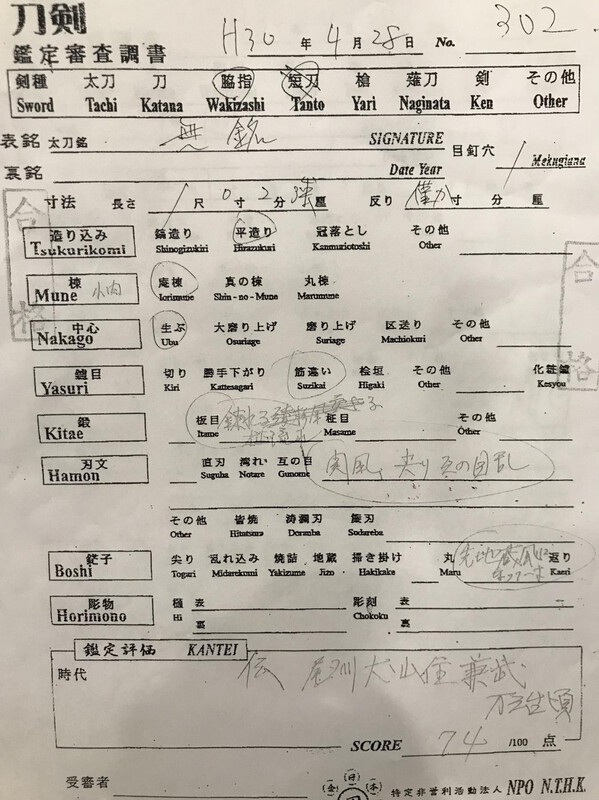 刀剣
鑑定審査調書 H30 年 4 月 28 日 No. 302
剣種 太刀 刀 脇指 短刀 槍 薙刀 剣 その他
Sword Tachi Katana Wakizashi Tanto Yari Naginata Ken Other
表銘 太刀銘 無銘 SIGNATURE 目釘穴 1 Mekugiana
裏銘 Date Year
寸法 長さ 1 尺 0 寸 2 分 強 厘 反り 僅か 寸 分 厘
造り込み 鎬造り 平造り 冠落とし その他
Tsukurikomi Shinogizukiri Hirazukuri Kanmuriotoshi Other
棟 庵棟 真の棟 丸棟
Mune 小肉 Iorimune Shin - no - Mune Marumune
中心 生ぶ 大磨り上げ 磨り上げ 区送り その他
Nakago Ubu Osuriage Suriage Machiokuri Other
鑢目 切り 勝手下がり 筋違い 桧垣 その他 化粧鑢
Yasuri Kiri Kattesagari Suzikai Higaki Other Kesyou
鍛 板目 柾目 その他
Kitae Itame Masame Other
刃文 直刃 湾れ 互の目 尖り互の目乱
Hamon Suguha Notare Gunome
その他 皆焼 濤瀾刃 簾刃
Other Hitatsura Doranba Sudareba
鋩子 尖り 乱れ込み 焼詰 地蔵 掃き掛け 丸 返り
Boshi Togari Midarekomi Yakizume Jizo Hakikake Maru Kaeri
彫物 樋 表 彫刻 表
Horimono Hi 裏 Chokoku 裏
鑑定評価 KANTEI
時代 伝 尾州犬山住兼武
頃
SCORE 74 /100 点
受審者 特定非営利活動法人 NPO N.T.H.K.
合格
合格